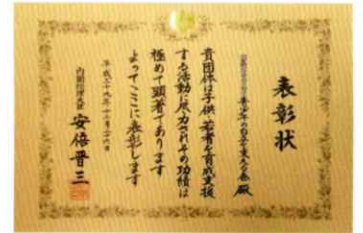 表彰状
殿
貴団体は子供・若者を育成支援
する活動に尽力されその功績は
極めて顕著であります
よってここに表彰します
平成二十九年十一月二十六日
内閣総理大臣 安倍晋三